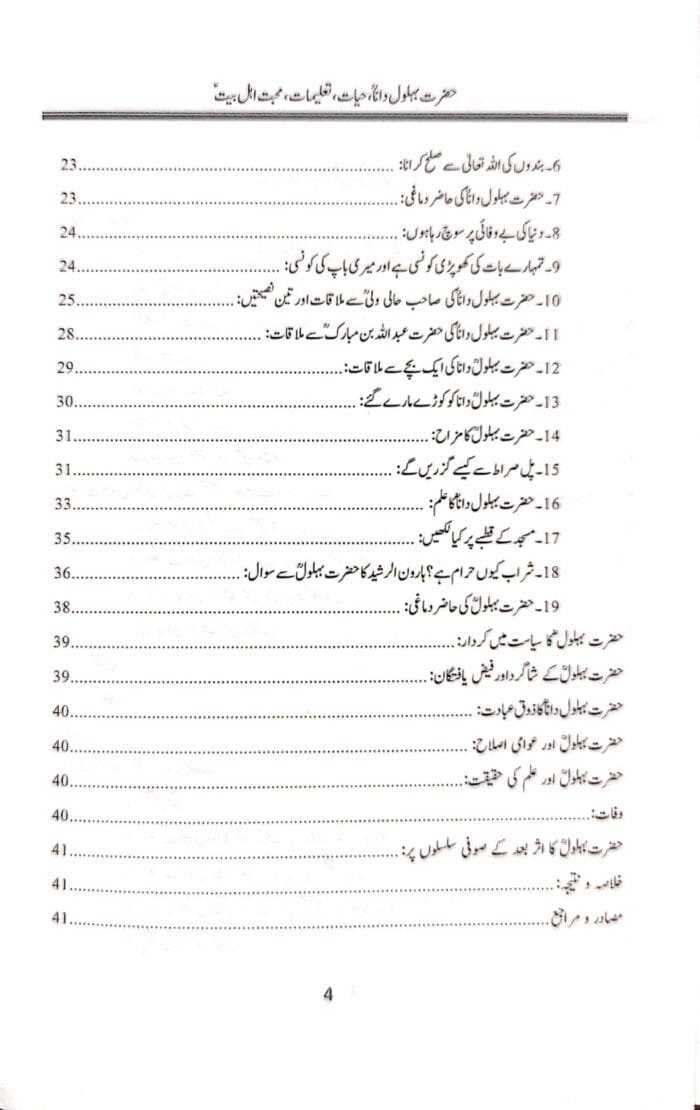 حضرت بہلول داناؒ، حیات، تعلیمات، محبت اہل بیتؑ
6۔ بندوں کی اللہ تعالیٰ سے صلح کرانا: ........ 23
7۔ حضرت بہلول داناؒ کی حاضر دماغی: ........ 23
8۔ دنیا کی بے وفائی پر سوچ رہا ہوں: ........ 24
9۔ تمہارے بات کی کھوپڑی کونسی ہے اور میری باپ کی کونسی: ........ 24
10۔ حضرت بہلول داناؒ کی صاحب حالی ولیؒ سے ملاقات اور تین نصیحتیں: ........ 25
11۔ حضرت بہلول داناؒ کی حضرت عبد اللہ بن مبارکؒ سے ملاقات: ........ 28
12۔ حضرت بہلولؒ دانا کی ایک بچے سے ملاقات: ........ 29
13۔ حضرت بہلولؒ دانا کو کوڑے مارے گئے: ........ 30
14۔ حضرت بہلولؒ کا مزاح: ........ 31
15۔ پل صراط سے کیسے گزریں گے: ........ 31
16۔ حضرت بہلول داناؒ کا علم: ........ 33
17۔ مسجد کے قطبے پر کیا لکھیں: ........ 35
18۔ شراب کیوں حرام ہے؟ ہارون الرشید کا حضرت بہلولؒ سے سوال: ........ 36
19۔ حضرت بہلولؒ کی حاضر دماغی: ........ 38
حضرت بہلولؒ کا سیاست میں کردار: ........ 39
حضرت بہلولؒ کے شاگرد اور فیض یافتگان: ........ 39
حضرت بہلول داناؒ کا ذوق عبادت: ........ 40
حضرت بہلولؒ اور عوامی اصلاح: ........ 40
حضرت بہلولؒ اور علم کی حقیقت: ........ 40
وفات: ........ 40
حضرت بہلولؒ کا اثر بعد کے صوفی سلسلوں پر: ........ 41
خلاصہ و نتیجہ: ........ 41
مصادر و مراجع ........ 41
4